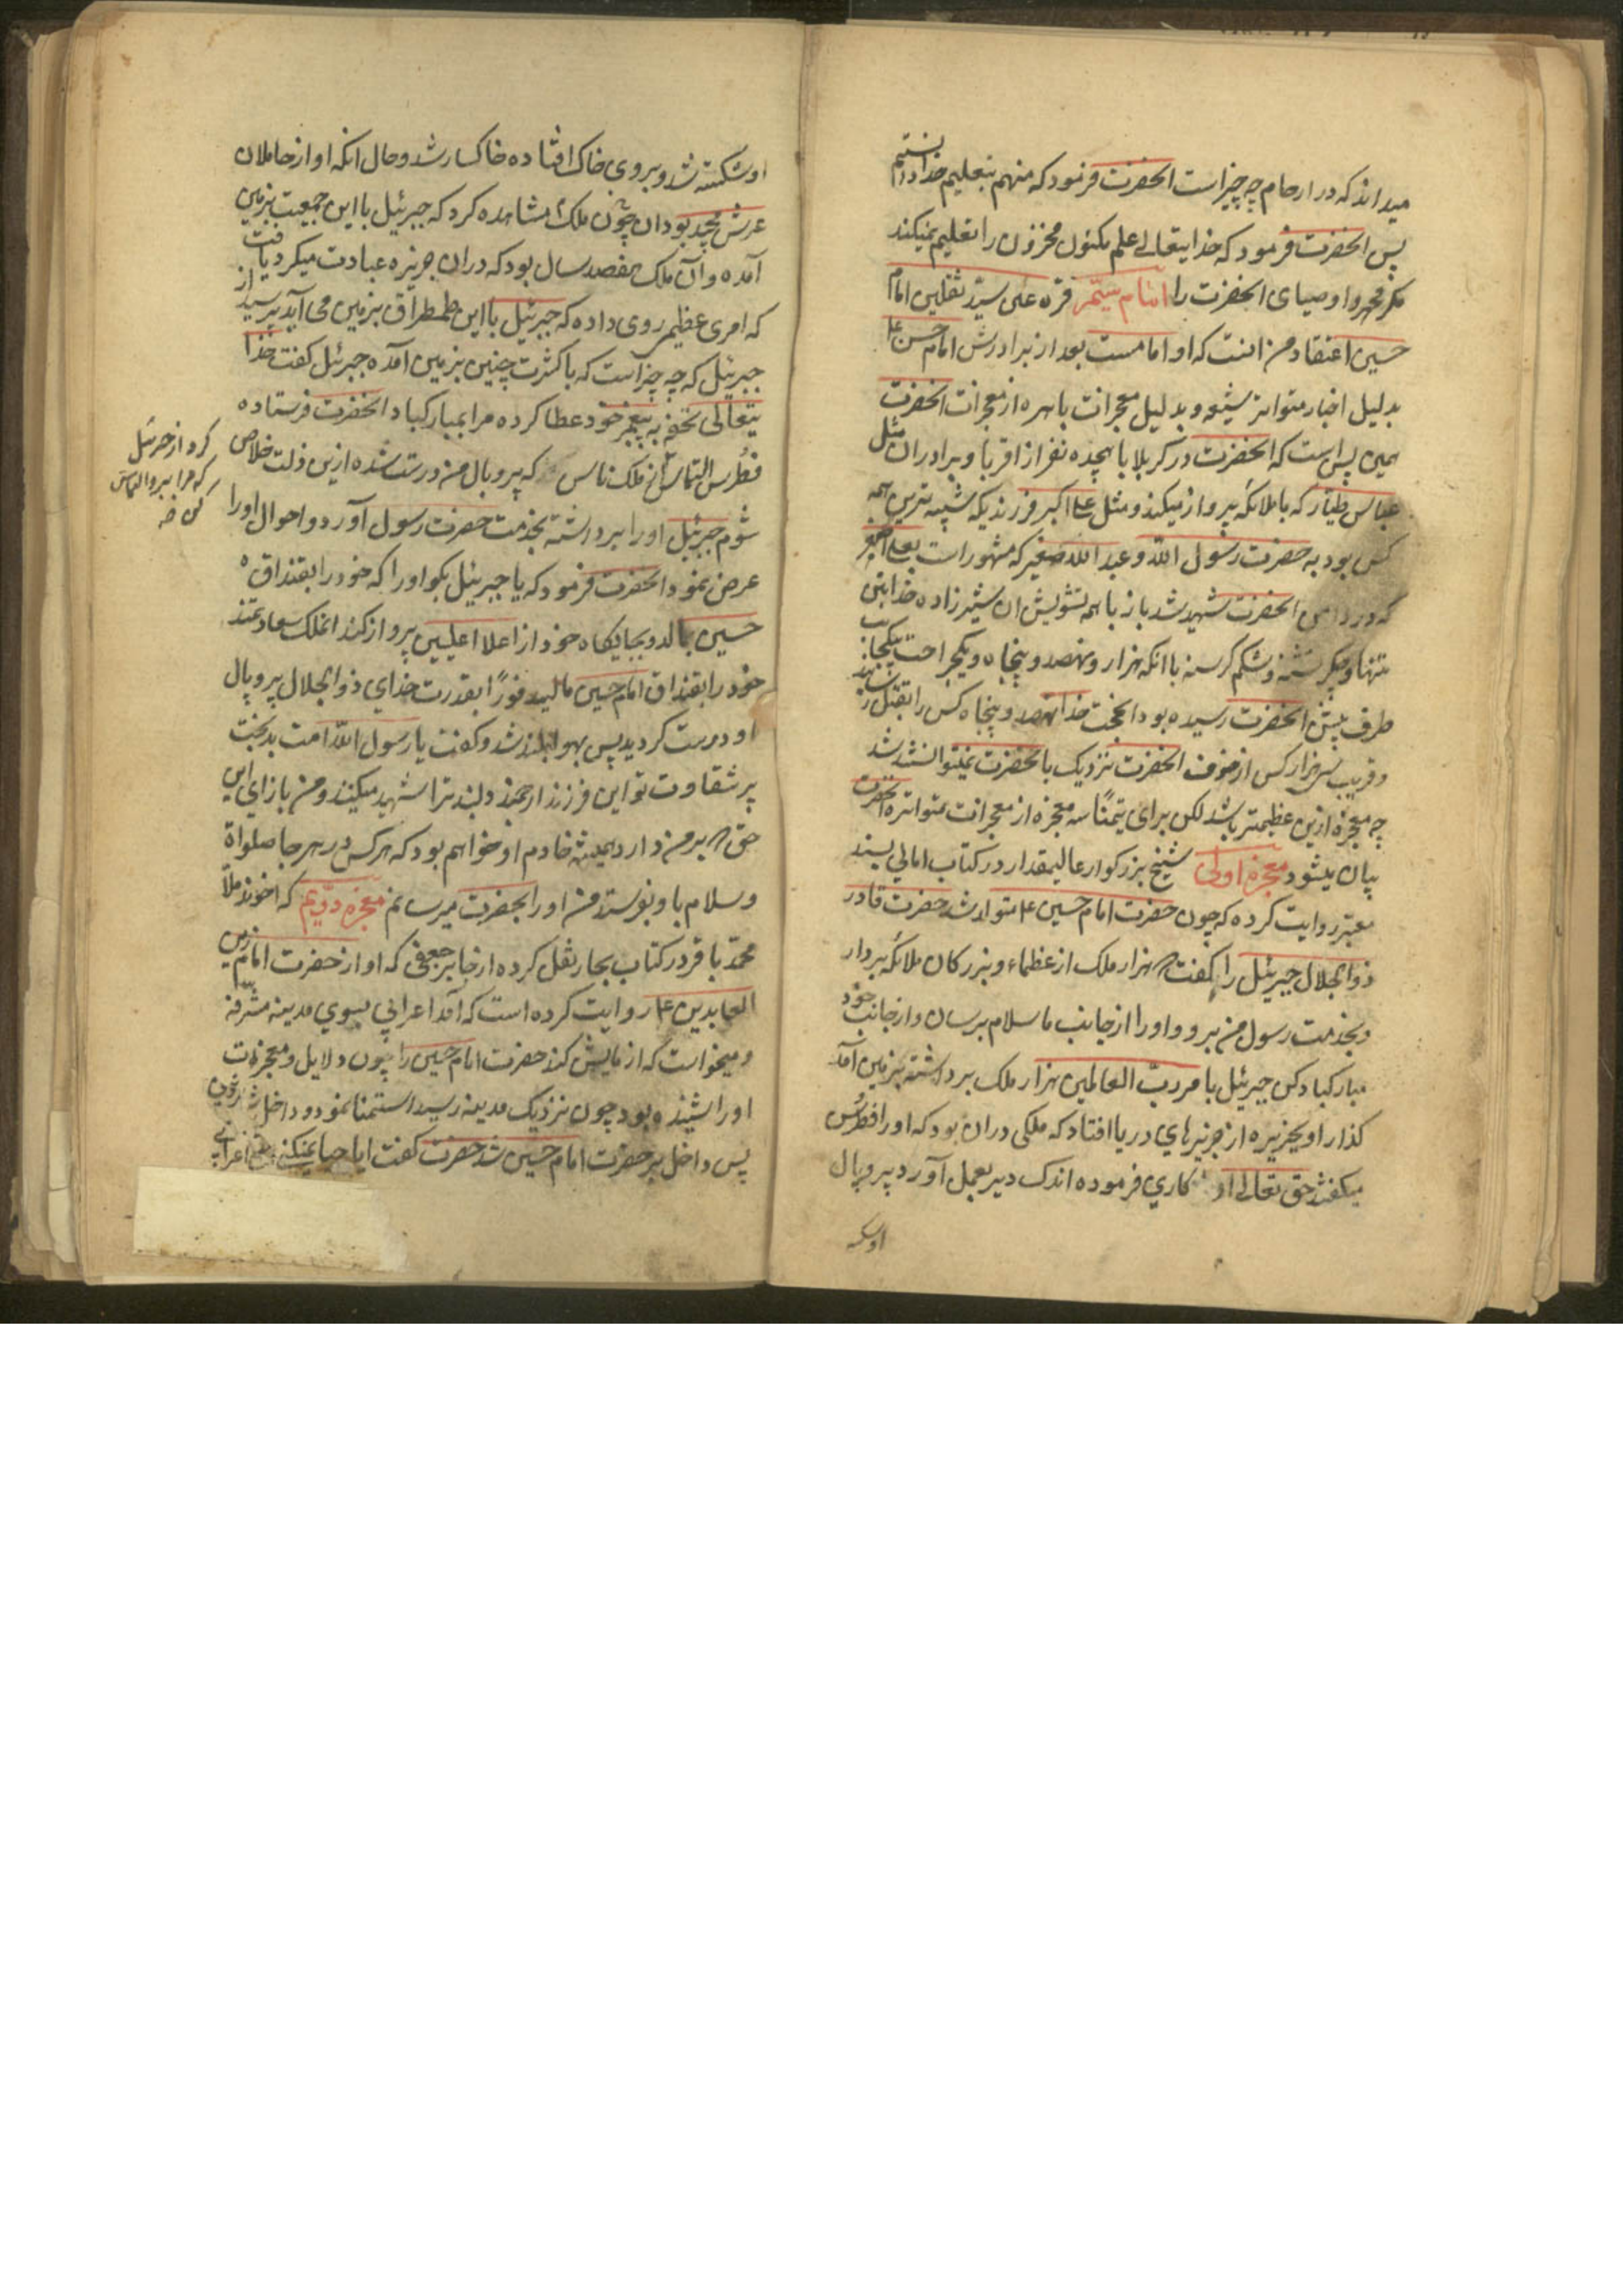 میداند که در ارحام چه چیز است انحضرت فرمود که منهم بتعلیم خدا دانستم
پس انحضرت فرمود که خدایتعالی علم مکنون مخزون را تعلیم نمیکند
مکر محمد و اوصیای انحضرت را امام سیّم قرة علی سیّد ثقلین امام
حسین اعتقاد من انست که او امامست بعد از برادرش امام حسن ع
بدلیل اخبار متواتر شیعه و بدلیل معجزات باهره از معجزات انحضرت
همین پس است که انحضرت در کربلا با هیجده نفر از اقربا و برادران مثل
عباس طیّار که با ملائکه پرواز میکند و مثل علی اکبر فرزندیکه شبیه ترین همه
کس بود به حضرت رسول الله و عبد الله صغیر که مشهور است بعلی اصغر
که در دامن انحضرت شهید شد باز با همه تشویش ان شیرزاده خدا
تنها و جکر تشنه و شکم کرسنه با انکه هزار و نهصد و پنجاه و یکجراحت بیکجانب
طرف پیش انحضرت رسیده بود انحجت خدا نهصد و پنجاه کس را بقتل رسانید
و قریب سی هزار کس از خوف انحضرت نزدیک بانحضرت نمیتوانستند شد
چه معجزه ازین عظیمتر باشد لکن برای تیمّنًا سه معجزه از معجزات متواتره انحضرت
بیان میشود معجزه اولی شیخ بزرکوار عالیمقدار در کتاب امالی بسند
معتبر روایت کرده که چون حضرت امام حسین ع متولد شد حضرت قادر
ذوالجلال جبرئیل را کفت که هزار ملک از عظماء و بزرکان ملائکه بردار
و بخدمت رسول من برو و او را از جانب ما سلام برسان و از جانب خود
مبارکباد کن جبرئیل بامر ربّ العالمین هزار ملک برداشته بزمین آمد
کذار او بجزیره از جزیرهای دریا افتاد که ملکی دران بود که او را فطرُس
میکفتند حق تعالی او کاری فرموده اندک دیر بعمل آورد پر و بال
اوشکسته
اوشکسته شد و بر روی خاک افتاده خاکسار شد و حال انکه او از حاملان
عرش مجید بود ان چون ملک مشاهده کرد که جبرئیل با این جمعیت بزمین
آمده و آن ملک هفصد سال بود که دران جزیره عبادت میکرد یافت
که امری عظیم روی داده که جبرئیل با این طمطراق بزمین می آید پرسید از
جبرئیل که چه چیز است که باکثرت چنین بزمین آمده جبرئیل کفت خدا
یتعالی تحفه به پیغمبر خود عطا کرده مرا بمبارکباد انحضرت فرستاده
فطُرس التماس که پر و بال من درست شده ازین ذلت خلاص
کرد از جبرئیل
که مرا ببر و التماس
کن
شوم جبرئیل او را برداشته بخدمت حضرت رسول آورد و احوال او را
عرض نمود انحضرت فرمود که یا جبرئیل بکو او را که خود را بقنداق
حسین بمالد و بجایکاه خود از اعلا اعلیین پرواز کند انملک سعادتمند
خود را بقنداق امام حسین مالید فورًا بقدرت خدای ذوالجلال پر و بال
او درست کردید پس بهوا بلند شد و کفت یا رسول الله امت بدبخت
پر شقاوت تو این فرزند ارجمند دلبند ترا شهید میکنند و من بازای این
حق که بر من دارد همیشه خادم او خواهم بود که هر کس در هر جا صلواة
و سلام باو بفرستد من او را بحضرت میرسانم معجزه دویّم که اخوند ملّا
محمّد باقر در کتاب بحار نقل کرده از جابر جعفی که او از حضرت امام زین
العابدین ع روایت کرده است که آمد اعرابی بسوی مدینه مشرفه
و میخواست که ازمایش کند حضرت امام حسین را چون دلایل و معجزه
او را شنیده بود چون نزدیک مدینه رسید استمنا نمود و داخل
پس داخل بر حضرت امام حسین شد حضرت کفت ایا حیا نمیکنی اعرابی